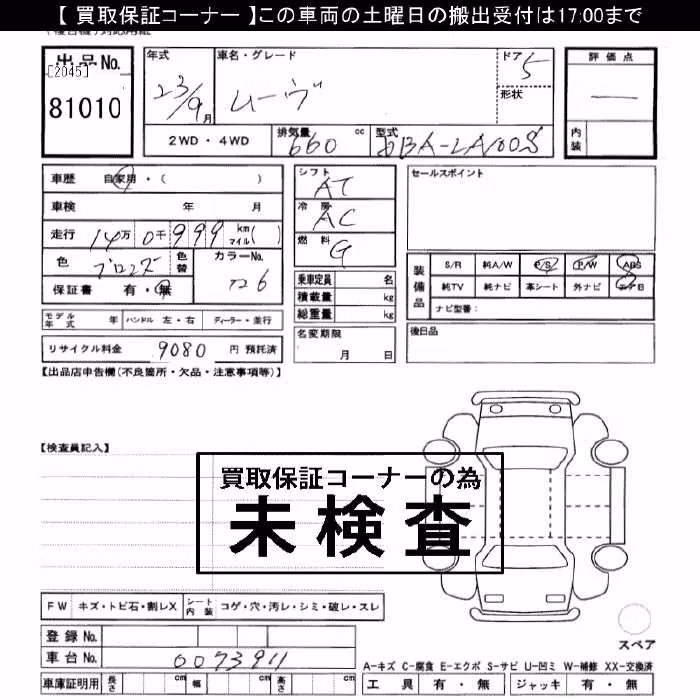 【 買取保証コーナー 】この車両の土曜日の搬出受付は17:00まで
出品No.
[2045]
81010
年式
23/9月
車名・グレード
ムーヴ
ドア 5
形状
2WD ・ 4WD
排気量 660 cc
型式 DBA-LA100S
評価点
―
内装
車歴 自家用・( )
車検 年 月
走行 14万0千999 km マイル( )
色 ブロンズ 色替
カラーNo. T26
保証書 有・無
シフト AT
冷房 AC
燃料 G
乗車定員 名
積載量 kg
総重量 kg
名変期限
月 日
セールスポイント
装備品
S/R 純A/W P/S P/W ABS
純TV 純ナビ 革シート 外ナビ エアB
ナビ型番:
後日品
モデル年式 年 ハンドル 左・右 ディーラー・並行
リサイクル料金 9080 円 預託済
【出品店申告欄(不良箇所・欠品・注意事項等)】
【検査員記入】
買取保証コーナーの為
未検査
FW キズ・トビ石・割レX シート内装 コゲ・穴・汚レ・シミ・破レ・スレ
登録No.
車台No. 0073911
車庫証明用 長さ cm 幅 cm 高さ cm
スペア
A-キズ C-腐食 E-エクボ S-サビ U-凹ミ W-補修 XX-交換済
工具 有・無 ジャッキ 有・無